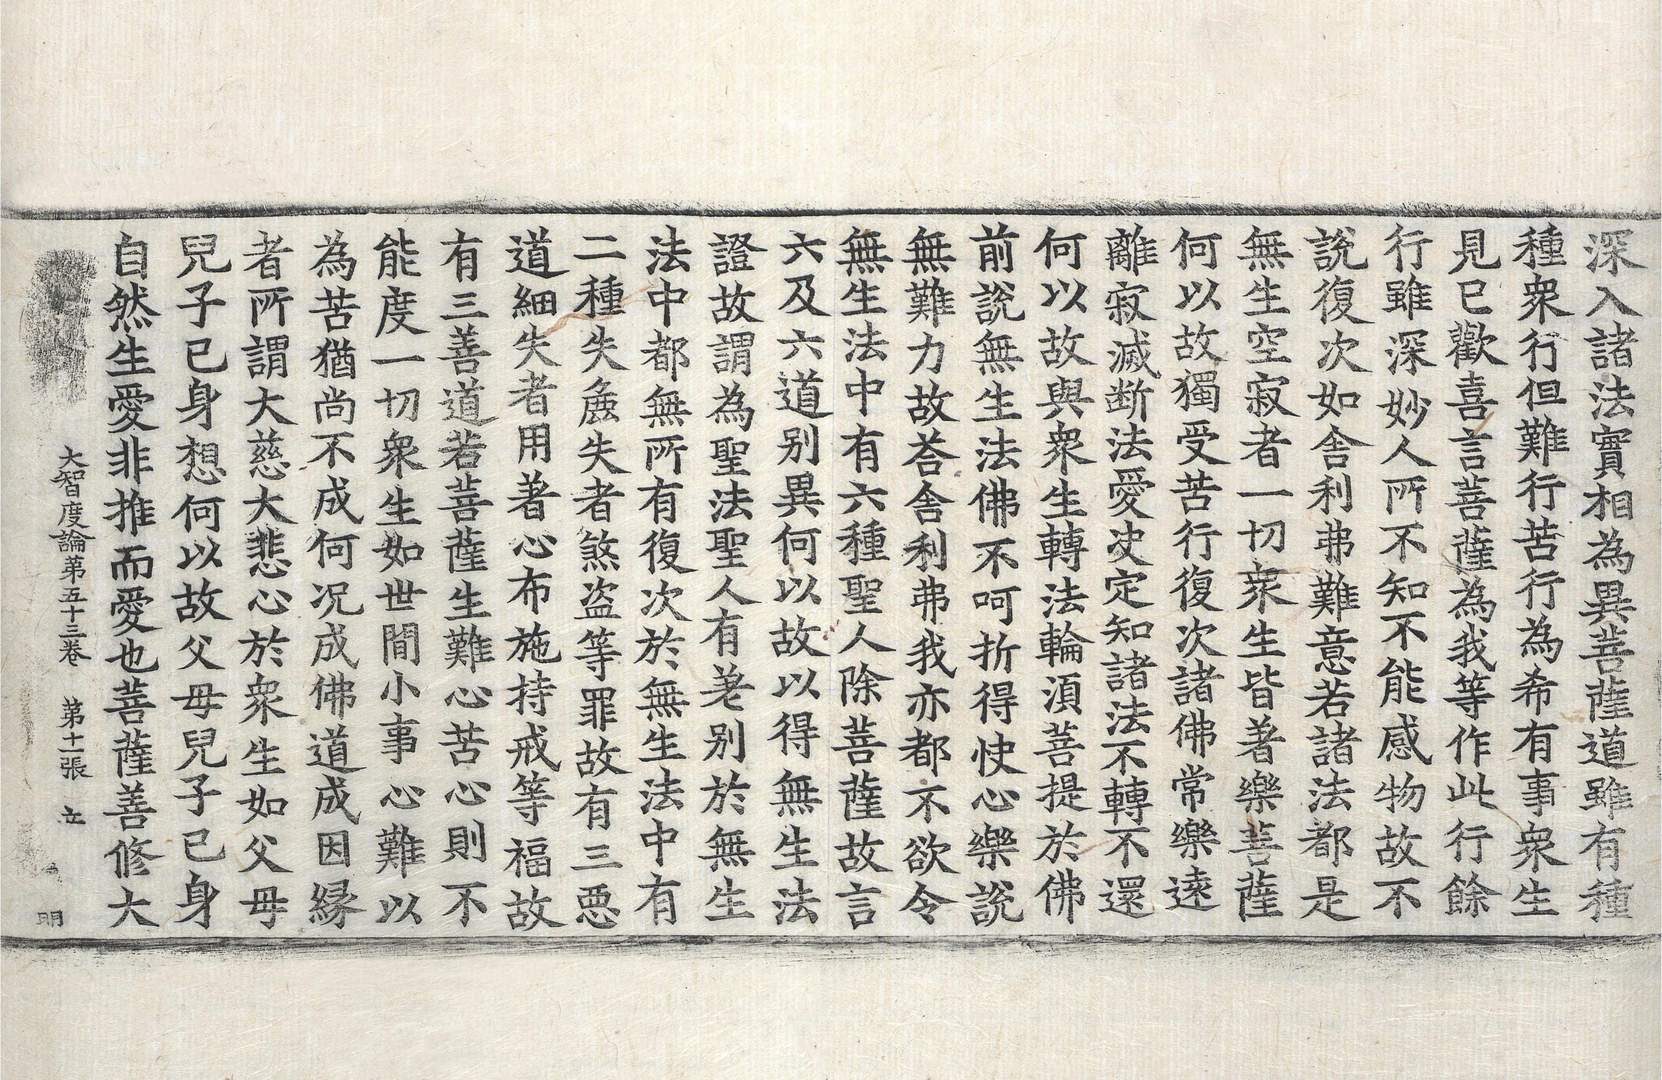 深入諸法實相為異菩薩道雖有種
種衆行但難行苦行為希有事衆生
見已歡喜言菩薩為我等作此行餘
行雖深妙人所不知不能感物故不
說復次如舎利弗難意若諸法都是
無生空寂者一切衆生皆著樂菩薩
何以故獨受苦行復次諸佛常樂遠
離寂滅断法愛决定知諸法不轉不還
何以故與衆生轉法輪湏菩提於佛
前說無生法佛不呵折得快心樂說
無難力故荅舎利弗我亦都不欲令
無生法中有六種聖人除菩薩故言
六及六道別異何以故以得無生法
證故謂為聖法聖人有差別於無生
法中都無所有復次於無生法中有
二種失麁失者煞盗等罪故有三悪
道細失者用著心布施持戒等福故
有三善道若菩薩生難心苦心則不
能度一切衆生如世間小事心難以
為苦猶尚不成何况成佛道成因縁
者所謂大慈大悲心於衆生如父母
兒子已身想何以故父母兒子已身
自然生愛非推而愛也菩薩善修大
大智度論第五十三卷　第十張　立
明